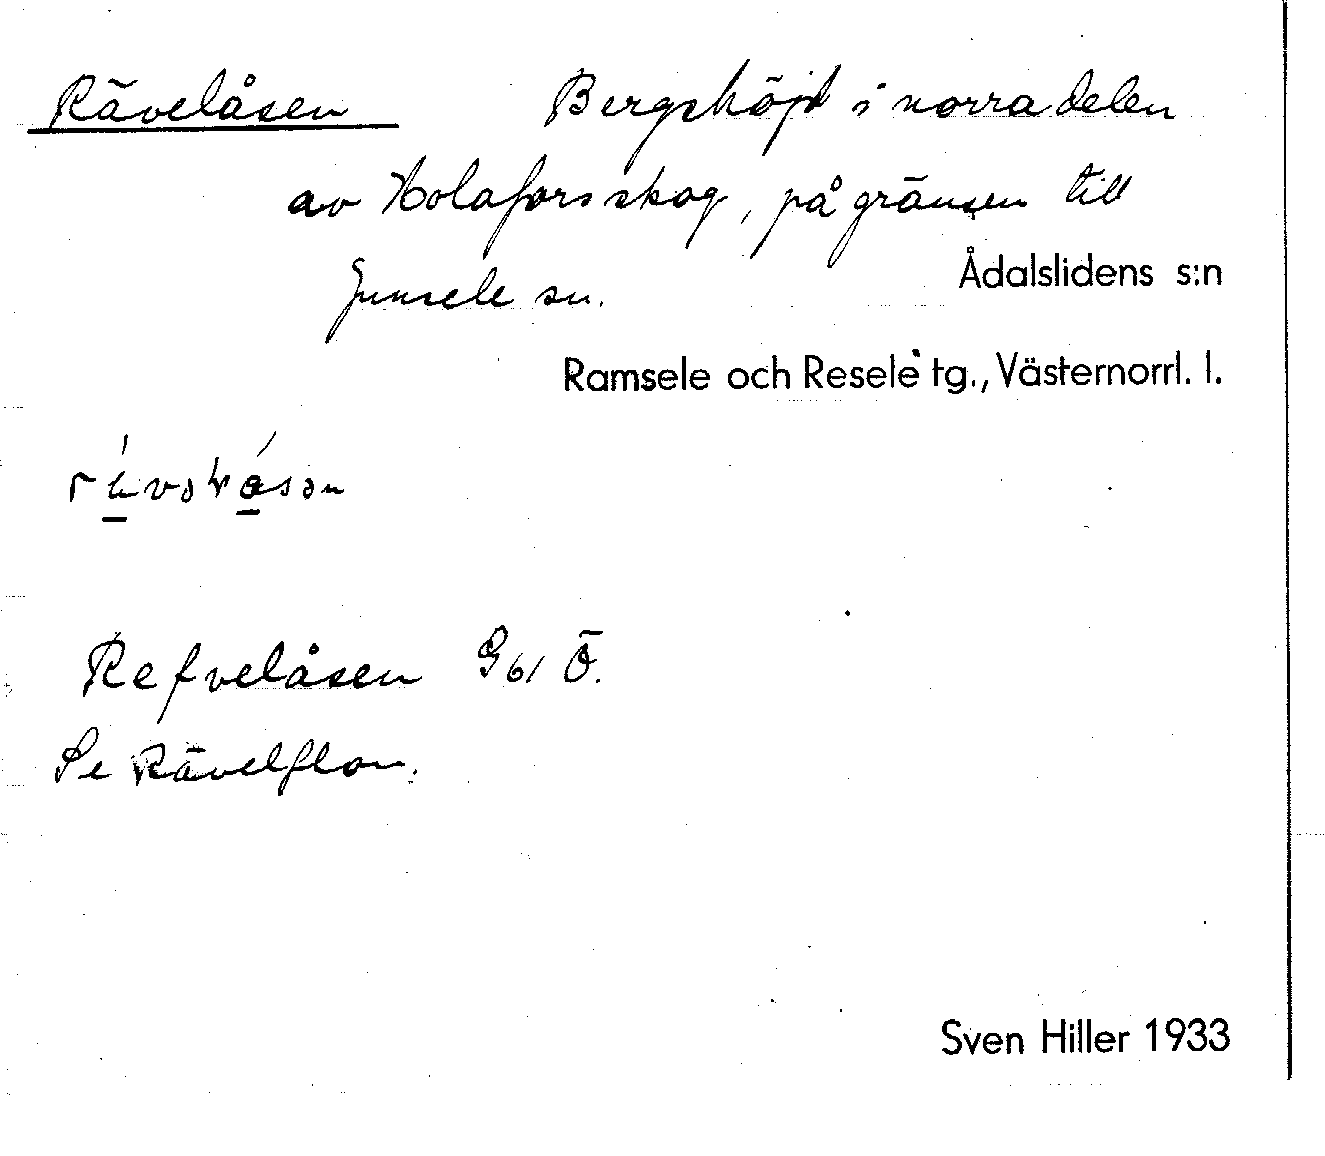 Rävelåsen Bergshöjd i norra delen
av Holafors skog, på gränsen till
Junsele sn.
Ådalslidens s:n
Ramsele och Resele tg., Västernorrl. l.
Refvelåsen G61 Ö.
Se Rävelflon.
Sven Hiller 1933